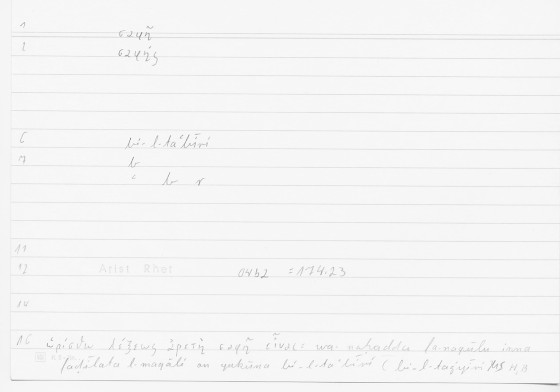 1 σαφῆ
σαφής
6 bi-l-taʿbīri
7 b
ʿ b r
11
12 Arist Rhet 04b2 =174.23
14
16 ὡρίσθω λέξεως ἀρετὴ σαφῆ εἶναι: wa- fa-naqūlu inna
faḍīlata l-maqāli an yakūna bi-l-taʿbīri (bi-l-taġyīri MS H,B